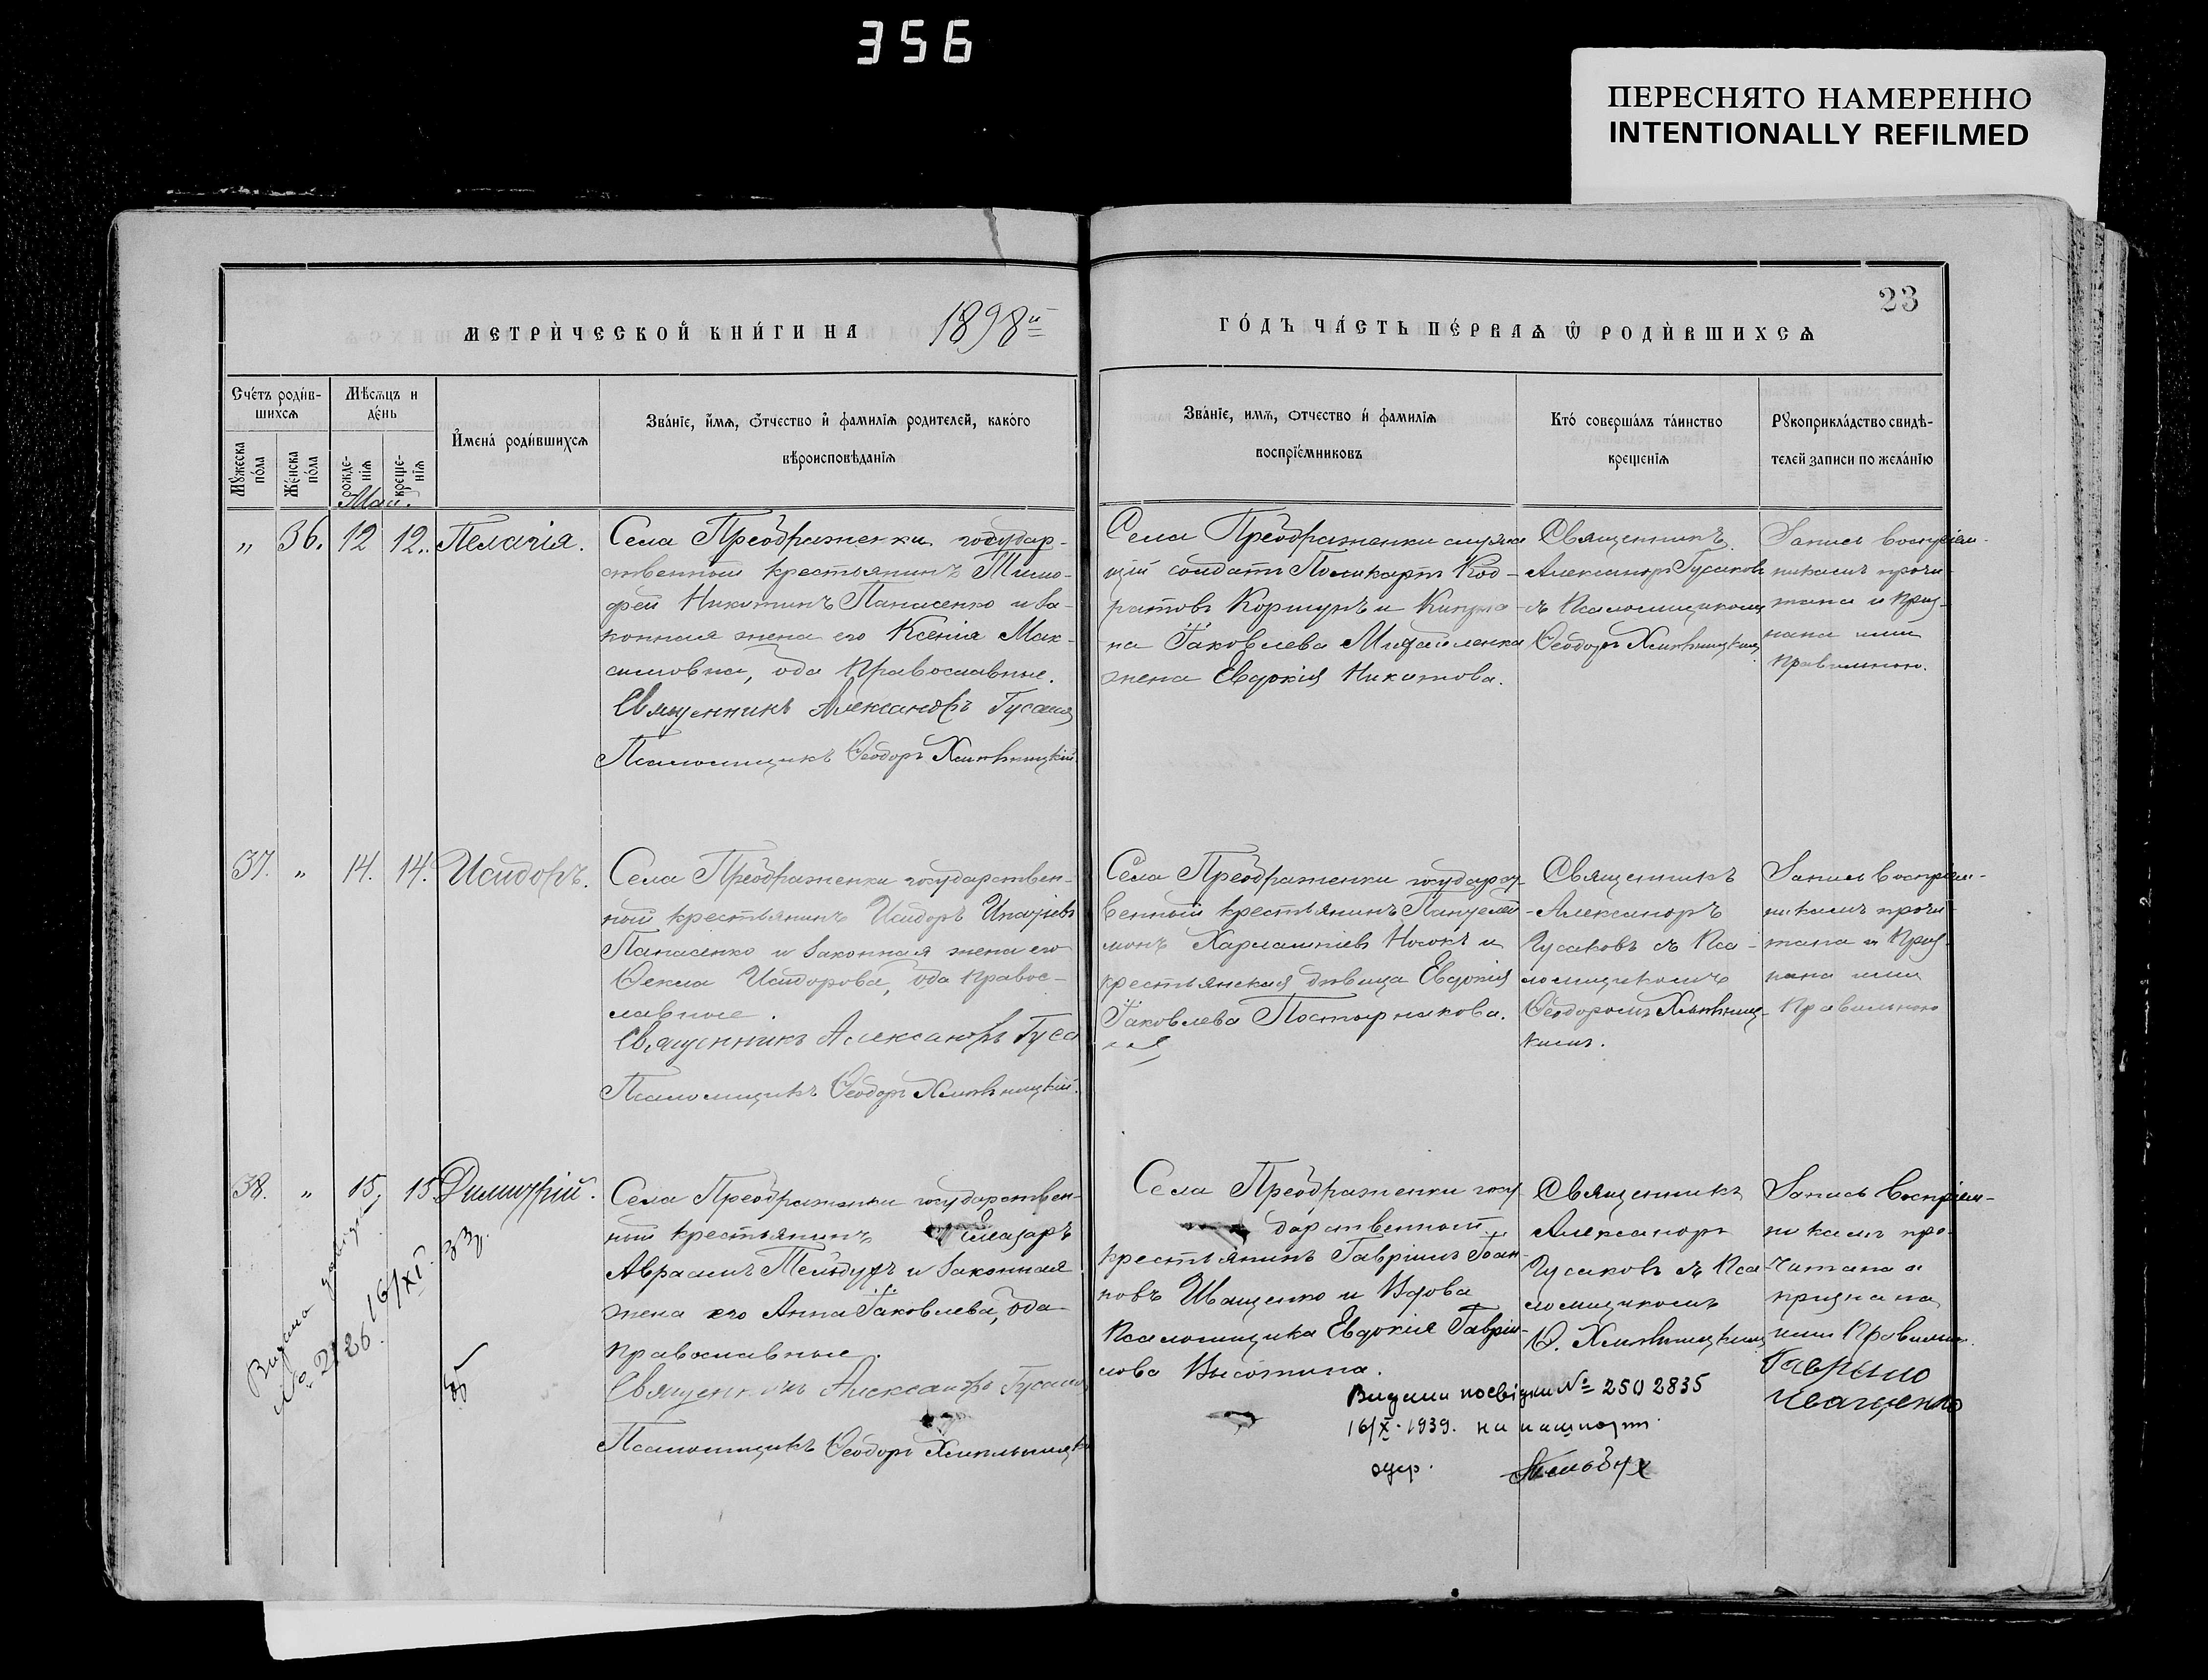 356
ПЕРЕСНЯТО НАМЕРЕННО
INTENTIONALLY REFILMED
23
МЕТРИ́ЧЕСКОЙ КНИ́ГИ НА 1898й
ГО́ДЪ ЧА́СТЬ ПЕ́РВАѦ Ѿ РОДИ́ВШИХСѦ
Сче́тъ роди́в-
шихсѧ
Мꙋжеска по́ла
Же́нска по́ла
Мѣ́сѧцъ и де́нь
рожде-нїѧ
креще-нїѧ
Имена̀ роди́вшихсѧ
Зва́нїе, и́мѧ, ѻ́тчество и фамилїѧ родителей, како́го
вѣроисповѣ́данїѧ
Зва́нїе, имѧ, ѻтчество и́ фамилїѧ
воспрїе́мниковъ
Кто́ соверша́лъ та́инство
креще́нїѧ
Рꙋкоприкла́дство свидѣ-
телей записи по жела́нїю
Май.
„ 36. 12 12. Пелагія.
Села Преображенки государ-
ственный крестьянинъ Тимо-
фей Никитинъ Панасенко и за-
конная жена его Ксенія Мак-
симовна, оба православные.
Священникъ Александръ
Псаломщикъ Ѳеодоръ Хмѣльницкій.
Села Преображенки
солдатъ Поликарпъ
Коршунъ и
Іаковлева Михайленка
жена Евдокія Никитова.
Священникъ
Александръ Гусаковъ
съ Псаломщикомъ
Ѳеодоръ Хмѣльницкимъ
Запись воспріем-
никамъ прочи-
тана и приз-
нана ими
правильною.
37. „ 14. 14. Исидоръ.
Села Преображенки государствен-
ный крестьянинъ Исидоръ Игнатіевъ
Панасенко и законная жена его
Ѳекла Исидорова, оба правос-
лавные.
Священникъ Александръ
Псаломщикъ Ѳеодоръ Хмѣльницкій.
Села Преображенки государст-
венный крестьянинъ Пантелей-
монъ Харлампіевъ Носокъ и
крестьянская дѣвица Евдокія
Іаковлева Постырнакова.
Священникъ
Александръ
Гусаковъ съ Пса-
ломщикомъ
Ѳеодоромъ Хмѣльниц-
кимъ.
Запись воспріем-
никамъ прочи-
тана и приз-
нана ими
правильною
38. „ 15. 15 Димитрій.
Села Преображенки государствен-
ный крестьянинъ Елеазаръ
Авраамъ Пельбухъ и законная
жена его Анна Іаковлева, оба
православные.
Священникъ Александръ
Псаломщикъ Ѳеодоръ
Села Преображенки госу-
дарственный
крестьянинъ Гавріилъ Іоан-
новъ Иващенко и вдова
Псаломщика Евдокія Гаврiи-
лова Высотина.
Священникъ
Александръ
Гусаковъ съ Пса-
ломщикомъ
Ѳ. Хмѣльницкимъ
Запись воспріем-
никамъ про-
читана и
признана
ими правильн.
Гаврыло
Иващенко
Видано
16/XI
Видали посвідки № 250 2835
16/X-1939. на пашпорт
одер. Пельбух